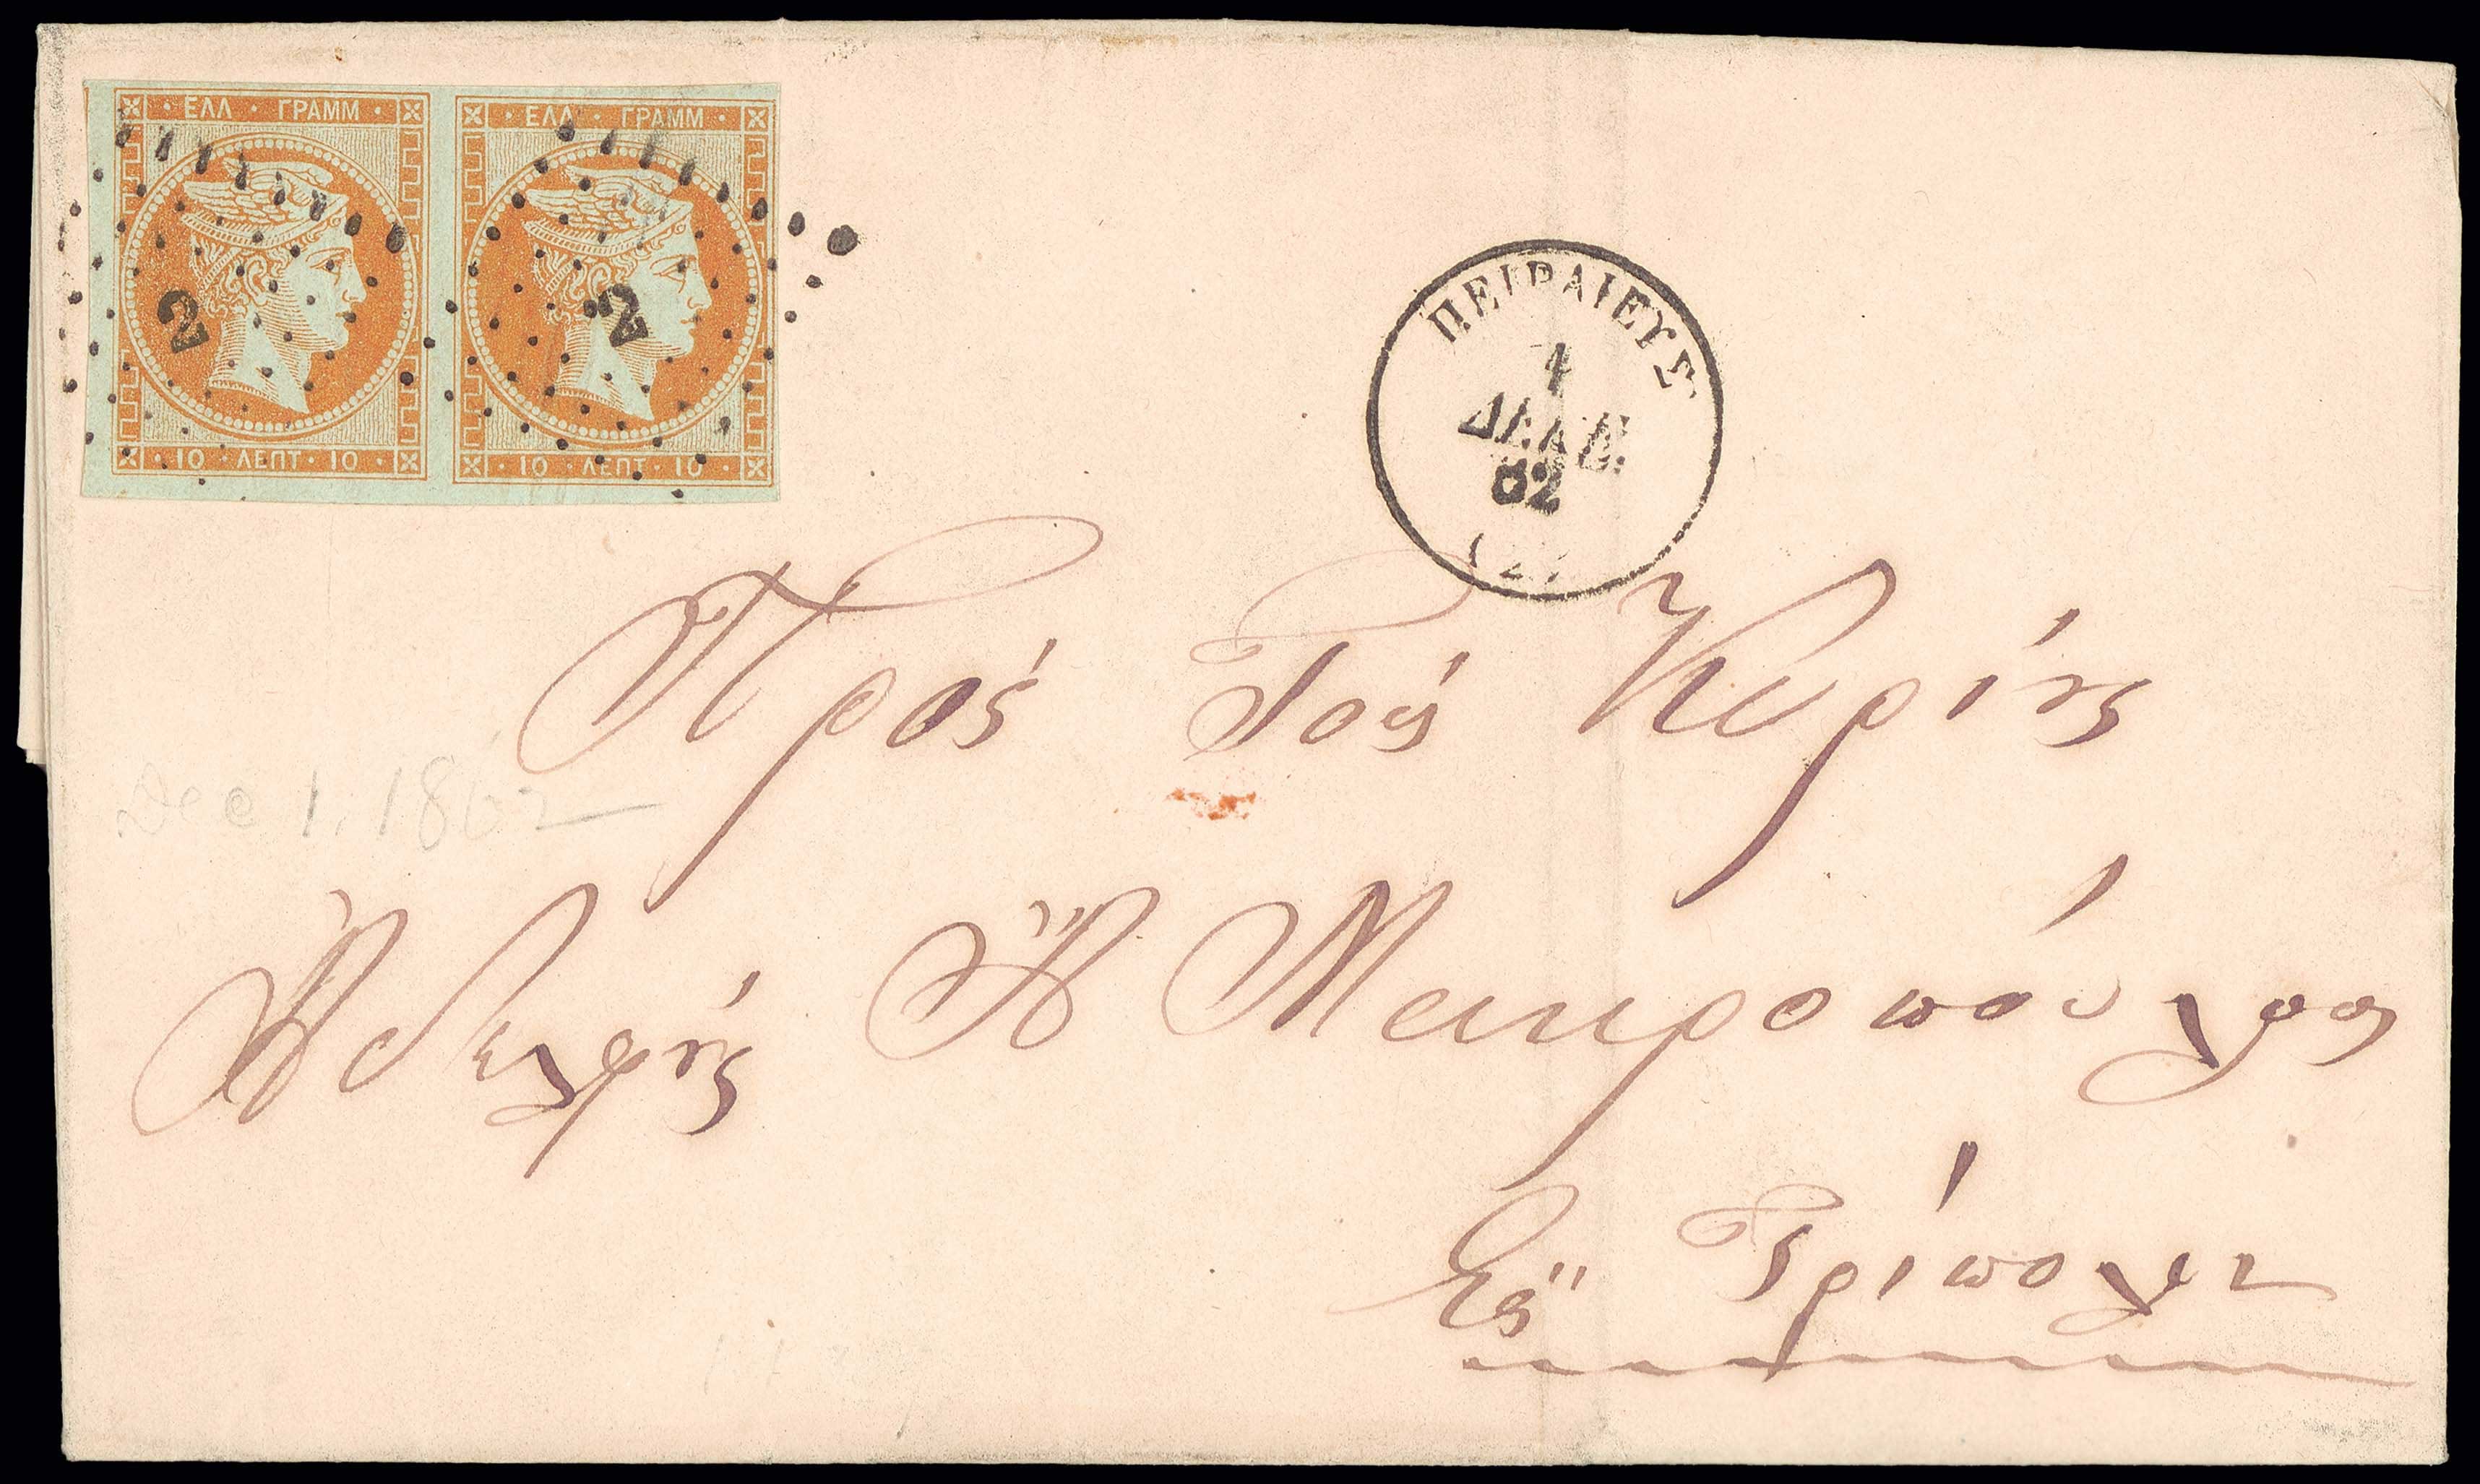 ΕΛΛ · ΓΡΑΜΜ ·
ΕΛΛ · ΓΡΑΜΜ ·
2
2
10 · ΛΕΠΤ · 10 ·
· 10 · ΛΕΠΤ · 10 ·
ΠΕΙΡΑΙΕΥΣ
1
ΔΕΚΕΜ.
62
(2)
Πρός Τούς Κυρίους
Dec 1, 1862
Ἀδελφούς Ἀ Μακροπούλους
Εἰς Τρίπολιν